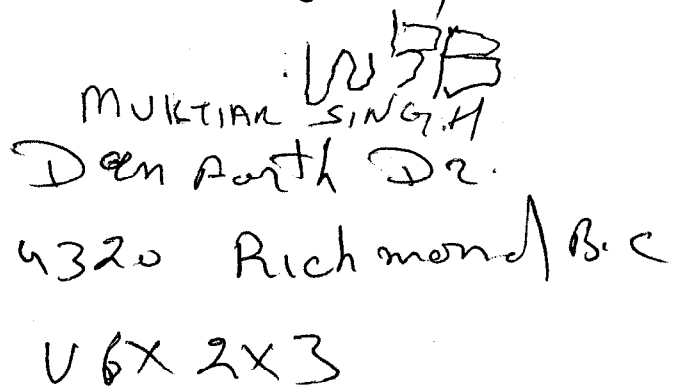 MUKTIAR SINGH
Danforth Dr.
4320 Richmond B.C
V6X 2X3